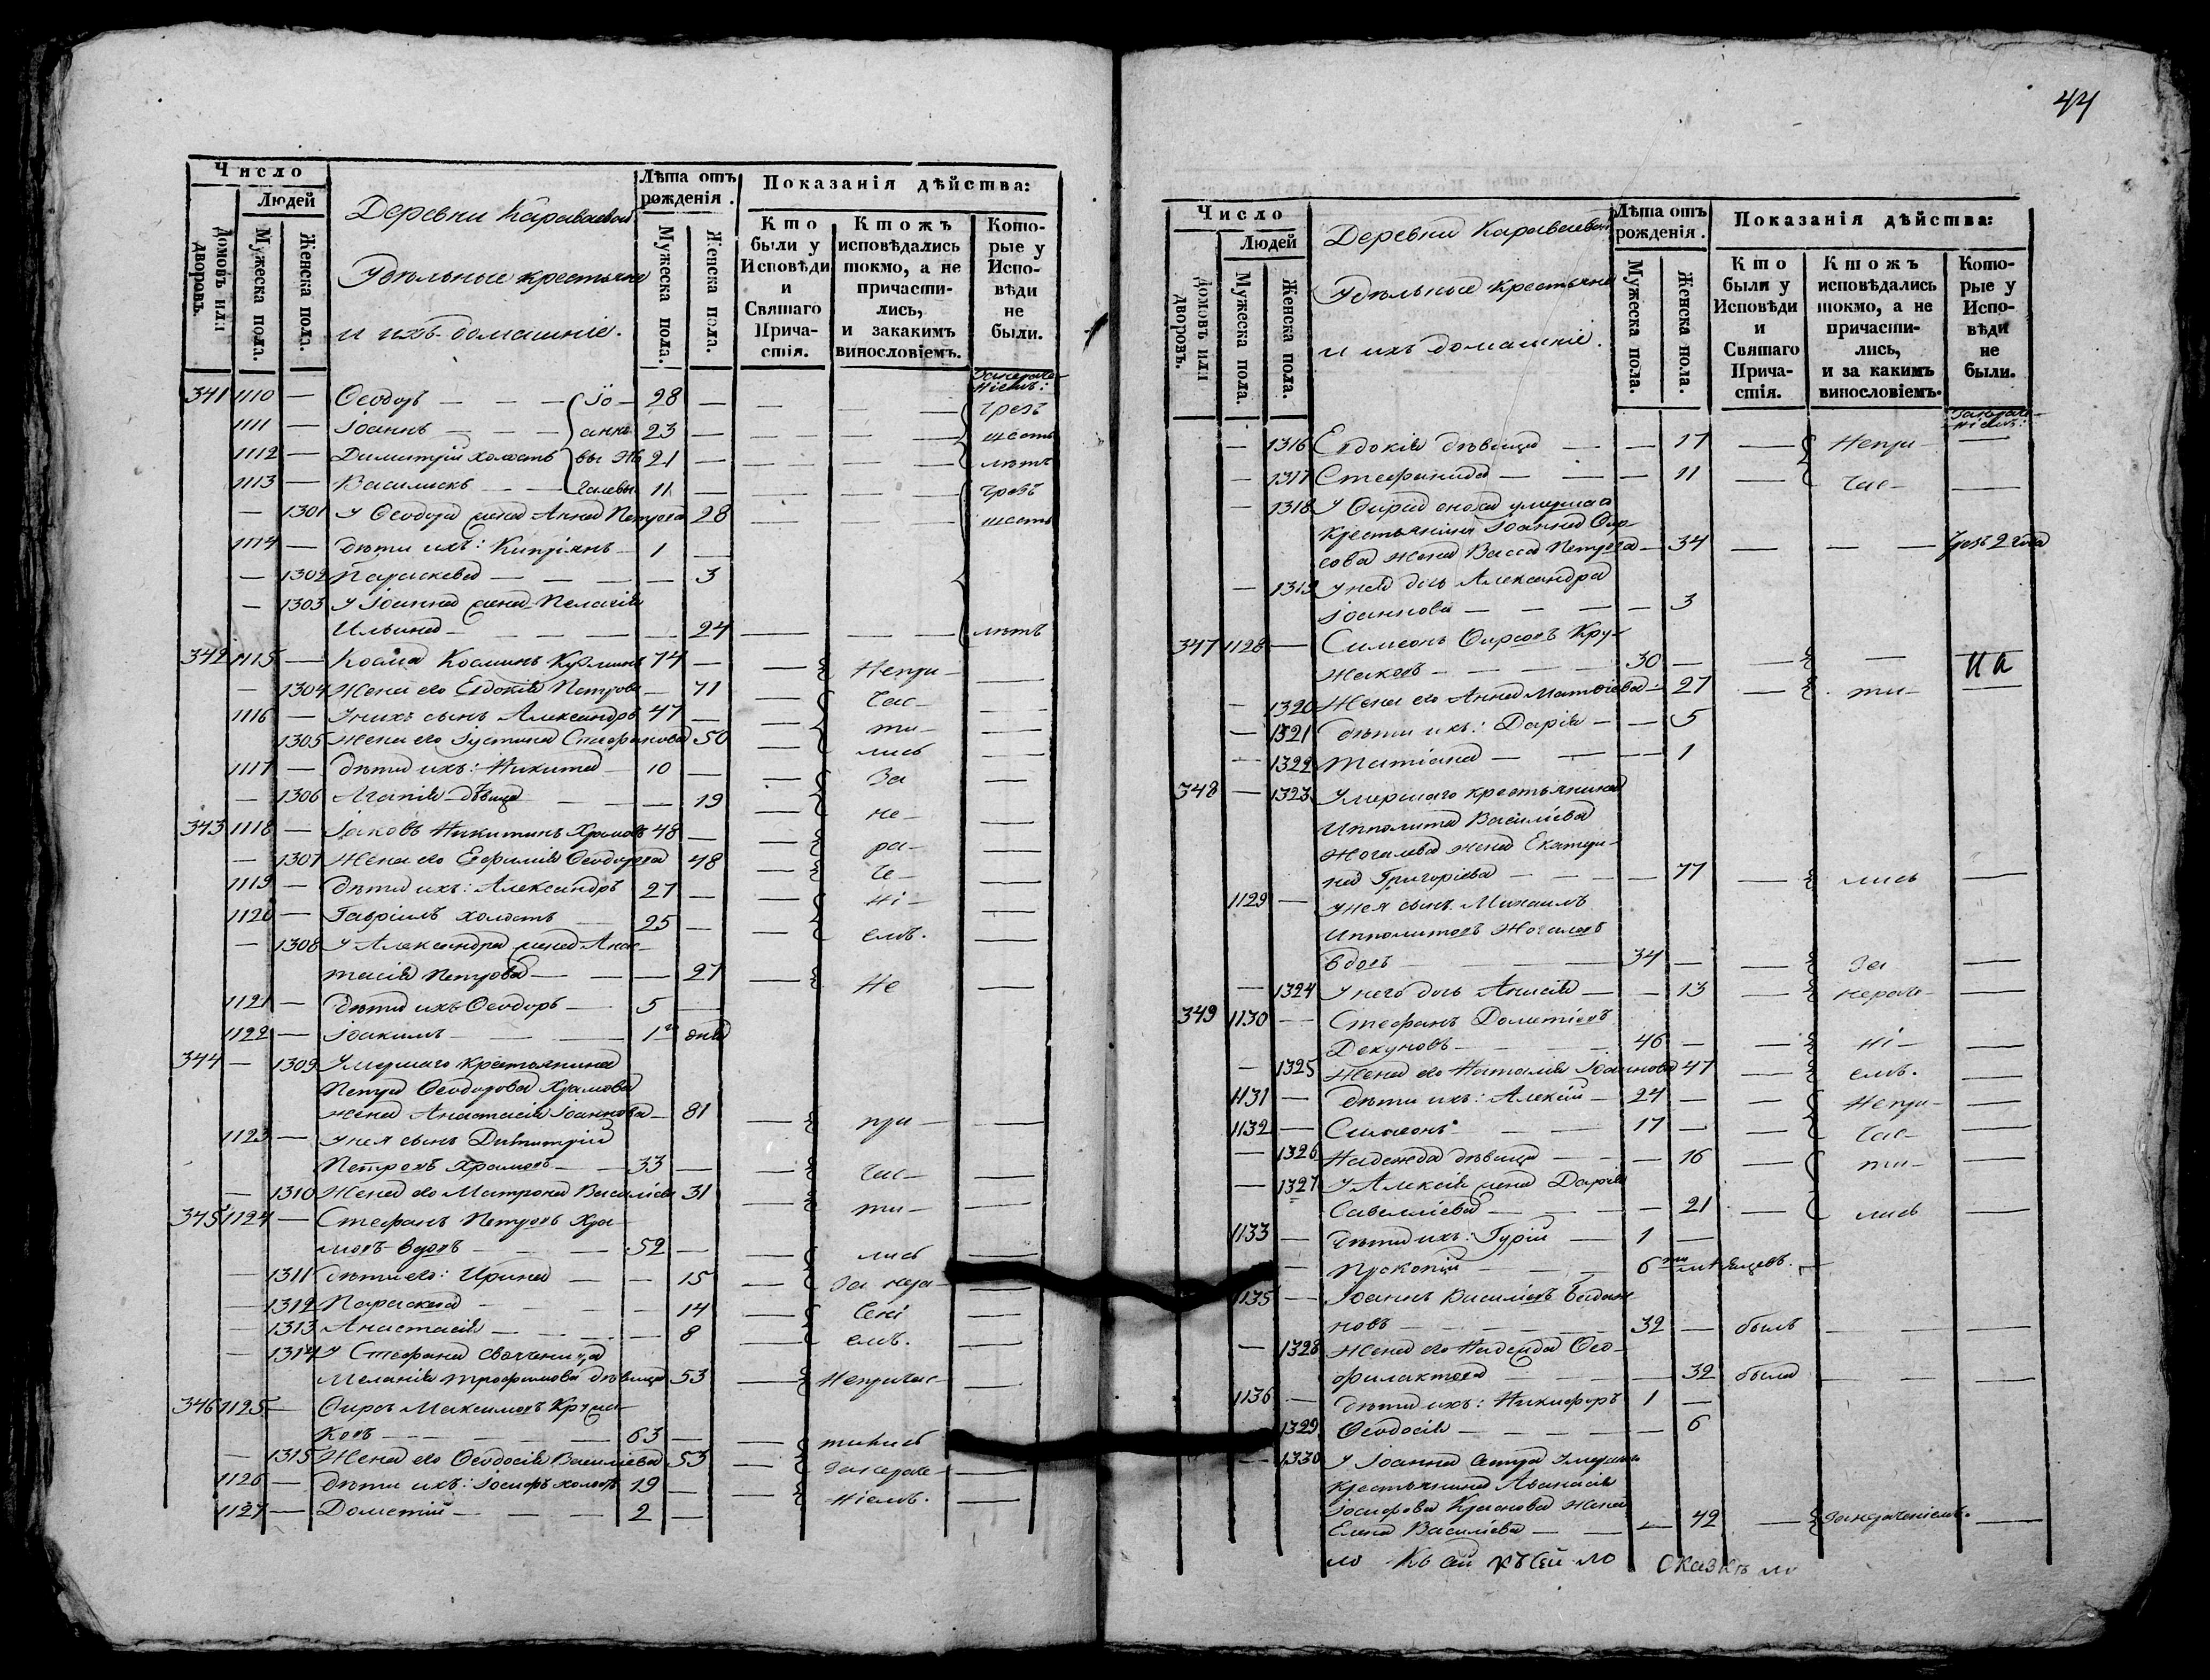 44
Число
Людей
Домовъ или дворовъ.
Мужеска пола.
Женска пола.
Деревни Караваевой
Удѣльные крестьяне
и ихъ домашніе.
Лѣта отъ рожденія.
Мужеска пола.
Женска пола.
Показанія дѣйства:
Кто были у Исповѣди и Святаго Причастія.
Ктожъ исповѣдались токмо, а не причастились, и закакимъ винословіемъ.
Которые у Исповѣди не были.
341 1110 — Ѳеодоръ — — — Іо- 28 —
1111 — Іоаннъ — — — анно 23 — шесть
1112 — Димитрій холостъ вы Жо 21 — лѣтъ
1113 — Василискъ — — галевы 11 —
— 1301 У Ѳеодора жена Анна Петрова 28 шесть
1114 — дѣти ихъ: Кипріянъ 1 —
— 1302 Параскева — — — — 3
— 1303 У Іоанна жена Пелагія
Ильина — — — — — 24 — — — лѣтъ
342 1115 — Косма Косминъ Кузминъ 74 — — Непри-
— 1304 Жена его Евдокія Петрова — 71 — час-
1116 — У нихъ сынъ Александръ 47 — — ти-
1305 Жена его Іустина Стефанова 50 — лись
1117 — дѣти ихъ: Никита 10 — — За
— 1306 Агапія дѣвица — — 19 — не-
343 1118 — Іаковъ Никитинъ Храмовъ 48 — — ра-
— 1307 Жена его Евфимія Ѳеодорова 48 — че-
1119 — дѣти ихъ: Александръ 27 — — ні-
1120 — Гавріилъ холостъ 25 — — емъ.
— 1308 У Александра жена Анас-
тасія Петрова — — — 27 — Не
1121 — дѣти ихъ Ѳеодоръ — 5 —
1122 — Іоакимъ — — 1 дня
344 — 1309 Умершаго крестьянина
Петра Ѳеодорова Храмова
жена Анастасія Іоаннова — 81 — при —
1123 — У нея сынъ Димитрій
Петровъ Храмовъ — — 33 — — час- —
— 1310 Жена его Матрона Василіева 31 — ти- —
345 1124 — Стефанъ Петровъ Хра-
мовъ вдовъ — — — 52 — — лись —
— 1311 дѣти его: Ирина — — 15 — За нера- —
— 1312 Параскева — — — 14 — чені —
— 1313 Анастасія — — — — 8 — емъ. —
— 1314 У Стефана свояченица
Меланія Трофимова дѣвица 53 — Непричас- —
346 1125 — Фирсъ Максимовъ Кружа-
ковъ — — — — 63 — — тились
— 1315 Жена его Ѳеодосія Василіева 53 — Занераче- —
1126 — дѣти ихъ: Іосифъ холостъ 19 — — ніемъ. —
1127 — Дометій — — — 2 —
Число
Людей
Домовъ или дворовъ.
Мужеска пола.
Женска пола.
Деревни Караваевой
Удѣльные крестьяне
и ихъ домашніе.
Лѣта отъ рожденія.
Мужеска пола.
Женска пола.
Показанія дѣйства:
Кто были у Исповѣди и Святаго Причастія.
Ктожъ исповѣдались токмо, а не причастились, и за какимъ винословіемъ.
Которые у Исповѣди не были.
— 1316 Евдокія дѣвица — — 17 — Непри- —
— 1317 Стефанида — — — 11 — час- —
— 1318 У Фирса сноха умершаго
крестьянина Іоанна Фир-
сова жена Васса Петрова — 34 — — — Чрезъ 2 года
— 1319 У нея дочь Александра
Іоаннова — — — — 3
347 1128 — Симеонъ Фирсовъ Кру-
жаковъ — — — — 30 — — —
— 1320 Жена его Анна Матѳіева — 27 — ти- —
— 1321 дѣти ихъ: Дарія — — 5
— 1322 Татіана — — — — 1
348 — 1323 Умершаго крестьянина
Ипполита Василіева
Жогалева жена Екатери-
на Григоріева — — — 77 — лись —
1129 — У нея сынъ Михаилъ
Ипполитовъ Жогалевъ
вдовъ — — — 34 — — За —
— 1324 У него дочь Анисія — — 13 — нераче- —
349 1130 — Стефанъ Дометіевъ
Декуновъ — — — 46 — — ні- —
— 1325 Жена его Наталія Іоаннова 47 — емъ. —
1131 — дѣти ихъ: Алексій — 24 — — Непри- —
1132 — Симеонъ — — 17 — — час- —
— 1326 Надежда дѣвица — — 16 — ти- —
— 1327 У Алексія жена Дарія
Савелліева — — — — 21 — лись —
1133 — дѣти ихъ: Гурій — 1 —
— Прокопій — — — 6 мѣсяцевъ. —
1135 — Іоаннъ Василіевъ
новъ — — — — 32 — былъ — —
— 1328 Жена его Надежда Ѳео-
филактова — — — 32 была — —
1136 — дѣти ихъ: Никифоръ 1 —
1329 Ѳеодосія — — — — 6
— 1330 У Іоанна сестра умершаго
крестьянина Аѳанасія
Іосифова Краснова жена
Елена Василіева — — — 42 — Занераченіемъ. —